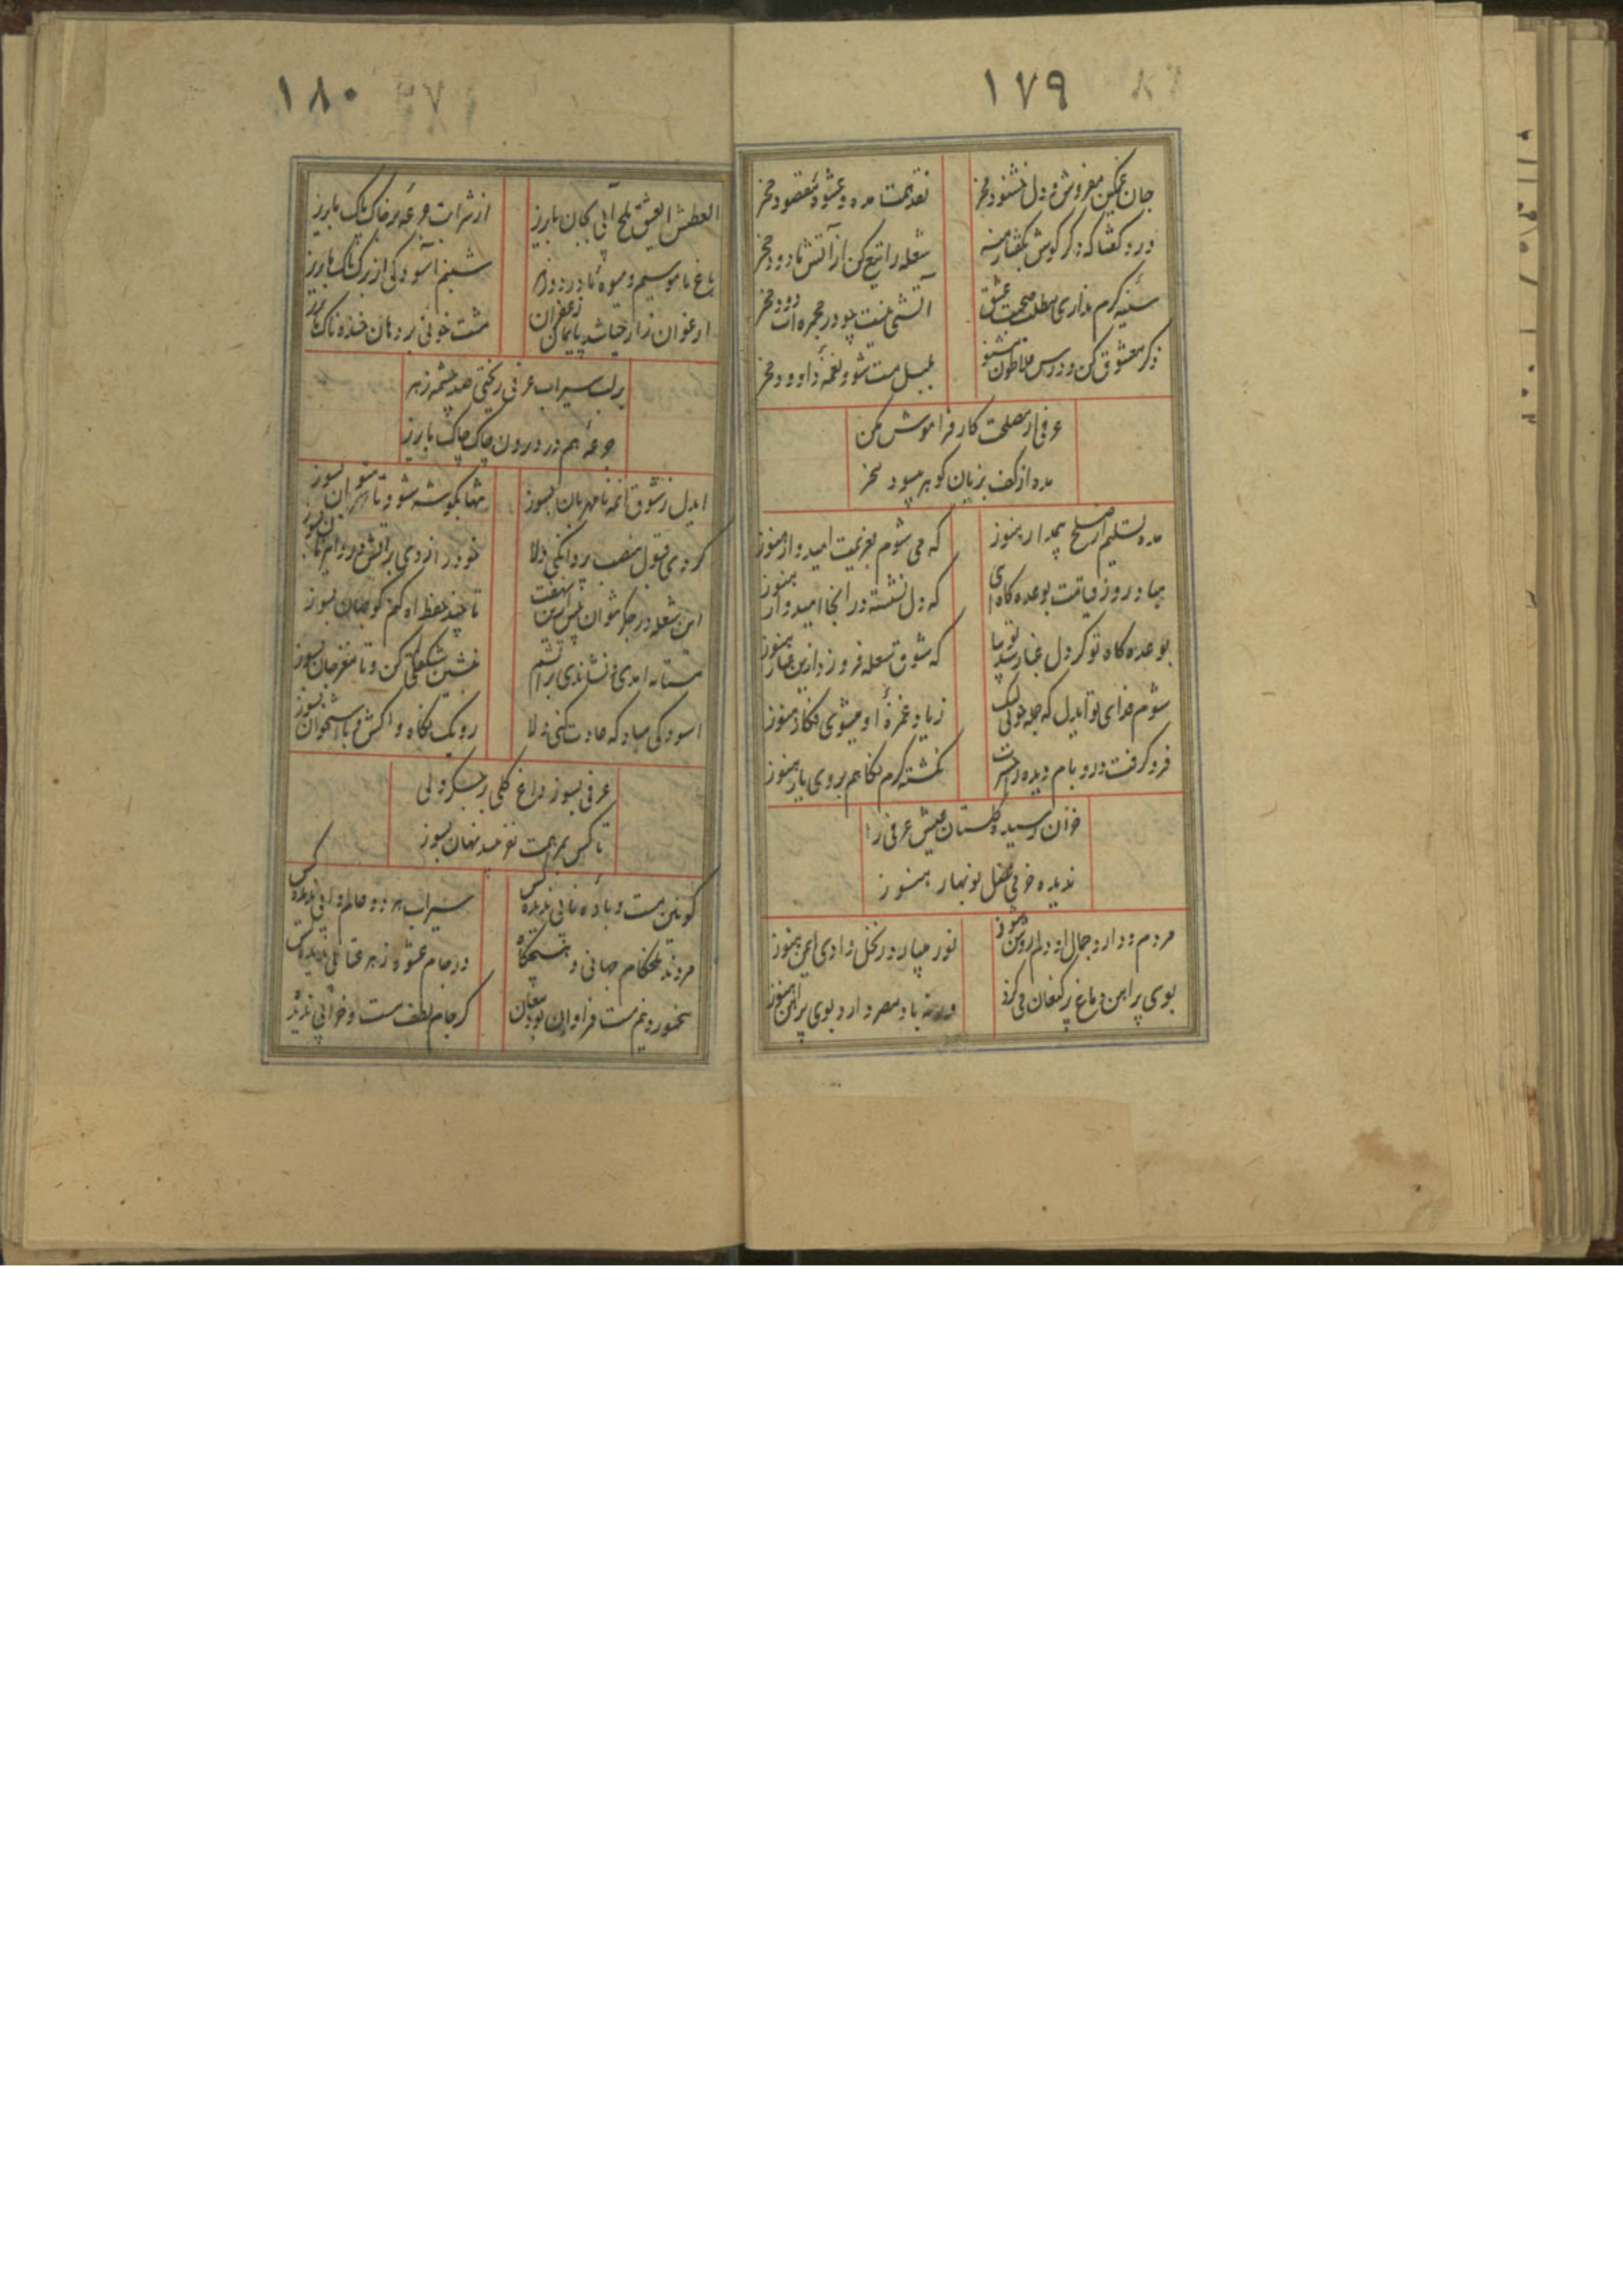 ١٧٩
جان غمگین مفروش و دل خشنود مخر
نقد همت مده و عشوه مقصود مخر
درد گفتا که دگر گوش بگفتار منه
شعله را تیغ کن از آتش نا دود مخر
سینه گرم نداری مطلب صحبت عشق
آتشی نیست چو در مجمره ات دود مخر
ذکر معشوق کن و درس فلاطون مشنو
بلبل مست شو و نغمه داوود مخر
عرفی از مصلحت کار فراموش مکن
مده از کف بزیان گوهر سود مخر
مده تسلیم از صلح بیمدار هنوز
که می شوم بعزیمت امیدوار هنوز
بیا در روز قیامت بوعده گاه ای
که دل نشسته در انجا امیدوار هنوز
بوعده گاه تو گر دل غبار شد تو بیا
که شوق شعله فروزد ازین غبار هنوز
شوم فدای تو ایدل که جمله خونی لیک
زیاد غمزه او میشوی فکار هنوز
فرو گرفت در و بام دیده را حسرت
نگشته گرم نگاهم بروی یار هنوز
خزان رسید گلستان عیش عرفی را
ندیده خرمی فصل نوبهار هنوز
مردم و دارد جمال او دلم روشن هنوز
نور میبارد ز نخل وادی ایمن هنوز
بوی پیراهن دماغ پیر کنعان می گزد
ورنه باد مصر دارد بوی پیراهن هنوز
١٨٠
العطش العشق تلخ آبی بجان ما بریز
از شرابت جرعه بر خاک پاک ما بریز
باغ ناموسیم و میوه ما درد دوزا
شبنم آسودگی از برگ تاک ما بریز
ارغوان زار حیا شد پایمال زعفران
مشت خونی بر دهان خنده ناک ما بریز
بر لب سیراب عرفی ریختی صد چشمه زهر
جرعه هم در درون چاک چاک ما بریز
ایدل ز شوق آن مه نامهربان بسوز
تنها بگوشه شو و تا میتوان بسوز
کردی قبول منصب پروانگی دلا
خود را زدی بر آتش
این شعله در جگر نتوان پیش ازین نهفت
تا چند حفظ آه کنم گو جهان بسوز
مستانه آمدی و نشاندی بر آتشم
بنشین شکفتگی کن و تا مغز جان بسوز
آسودگی مباد که عادت کنی دلا
رو یک نگاه واکش و با استخوان بسوز
عرفی بسوز داغ گلی بر جگر ولی
تا کس بمرهمت نفریبد نهان بسوز
کونین مست و باده نابی ندیده کس
سیراب هر دو عالم و آبی ندیده کس
مردند تلخکام جهانی و هیچگاه
در جام عشوه زهر عتابی ندیده کس
مخمور و نیم مست فراوان بود مغان
کز جام لطف مست و خرابی ندیده کس